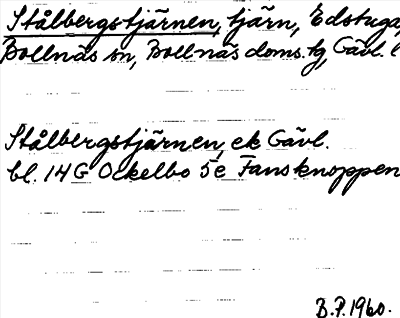 Stålbergstjärnen, tjärn, Edstuga,
Bollnäs sn, Bollnäs doms. tg, Gävl. l
Stålbergstjärnen, ek Gävl.
bl. 14 G Ockelbo 5e Fansknoppen
B.P. 1960.